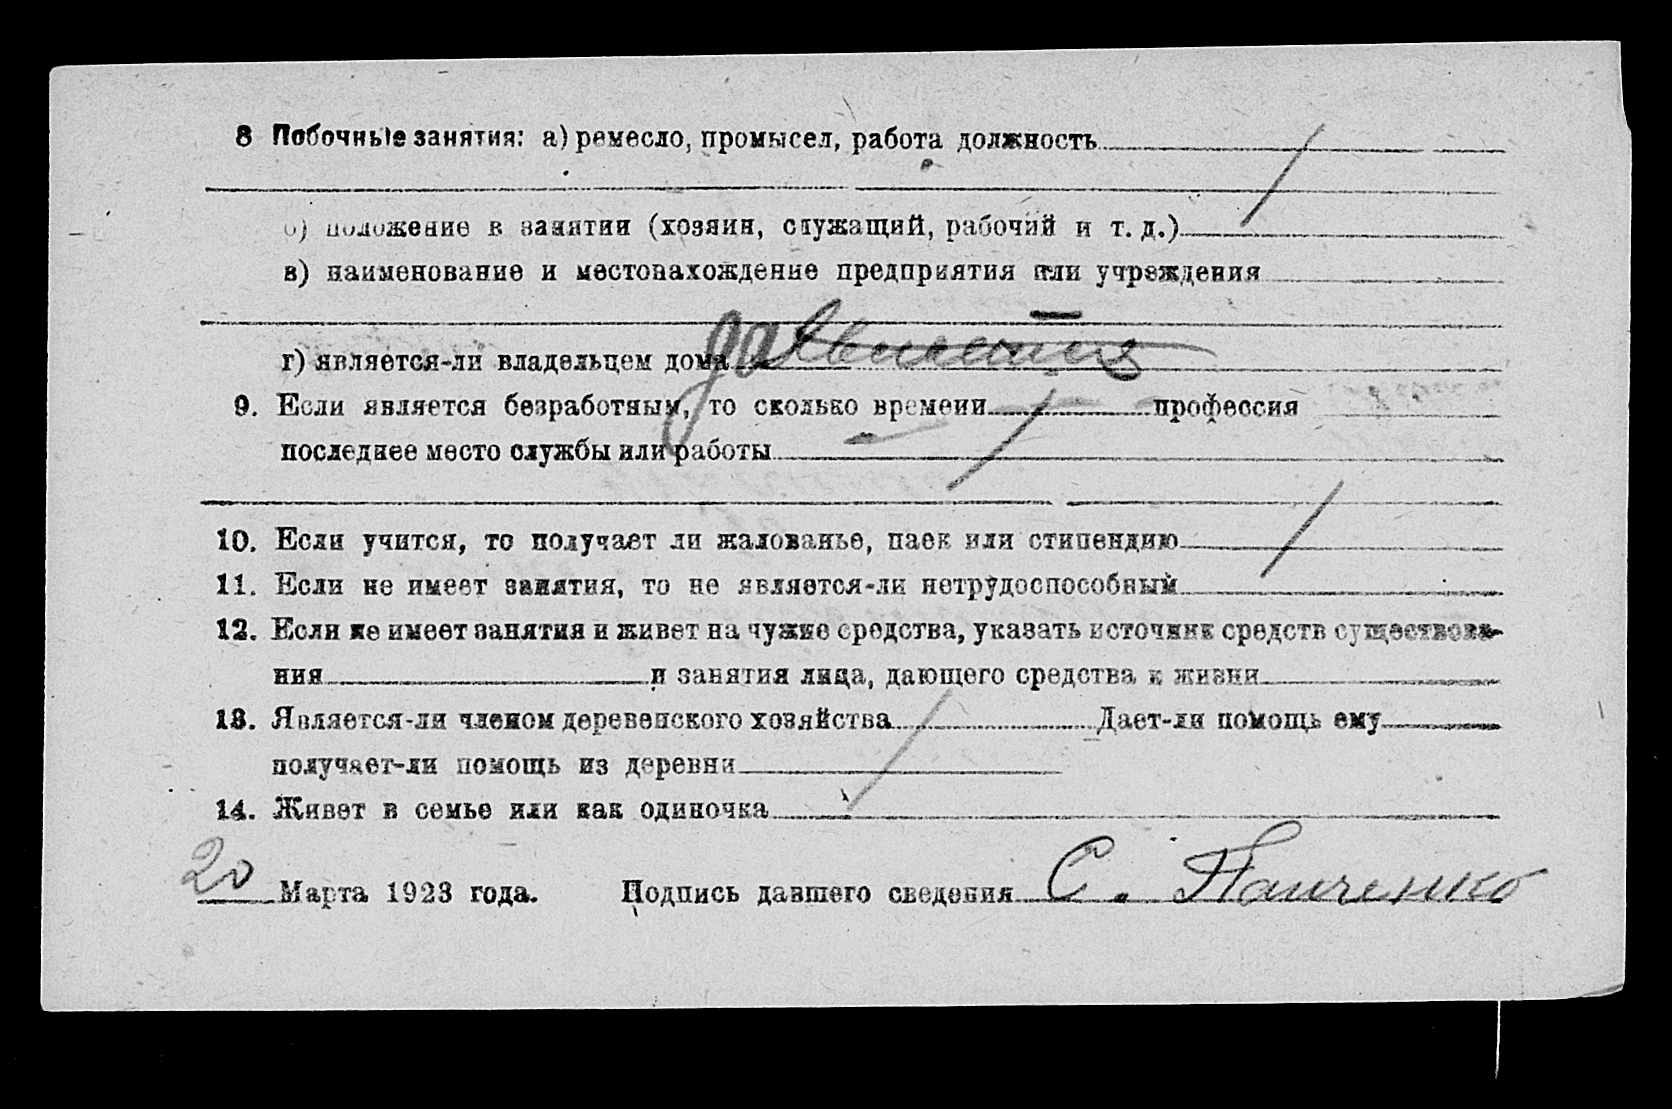 8 Побочные занятия: а) ремесло, промысел, работа должность
б) положение в занятии (хозяин, служащий, рабочий и т. д.)
в) наименование и местонахождение предприятия или учреждения
г) является-ли владельцем дома да Является
9. Если является безработным, то сколько времени профессия
последнее место службы или работы
10. Если учится, то получает ли жалованье, паек или стипендию
11. Если не имеет занятия, то не является-ли нетрудоспособный
12. Если не имеет занятия и живет на чужие средства, указать источник средств существова-
ния и занятия лица, дающего средства к жизни
13. Является-ли членом деревенского хозяйства Дает-ли помощь ему
получает-ли помощь из деревни
14. Живет в семье или как одиночка
20 Марта 1923 года. Подпись давшего сведения С. Панченко